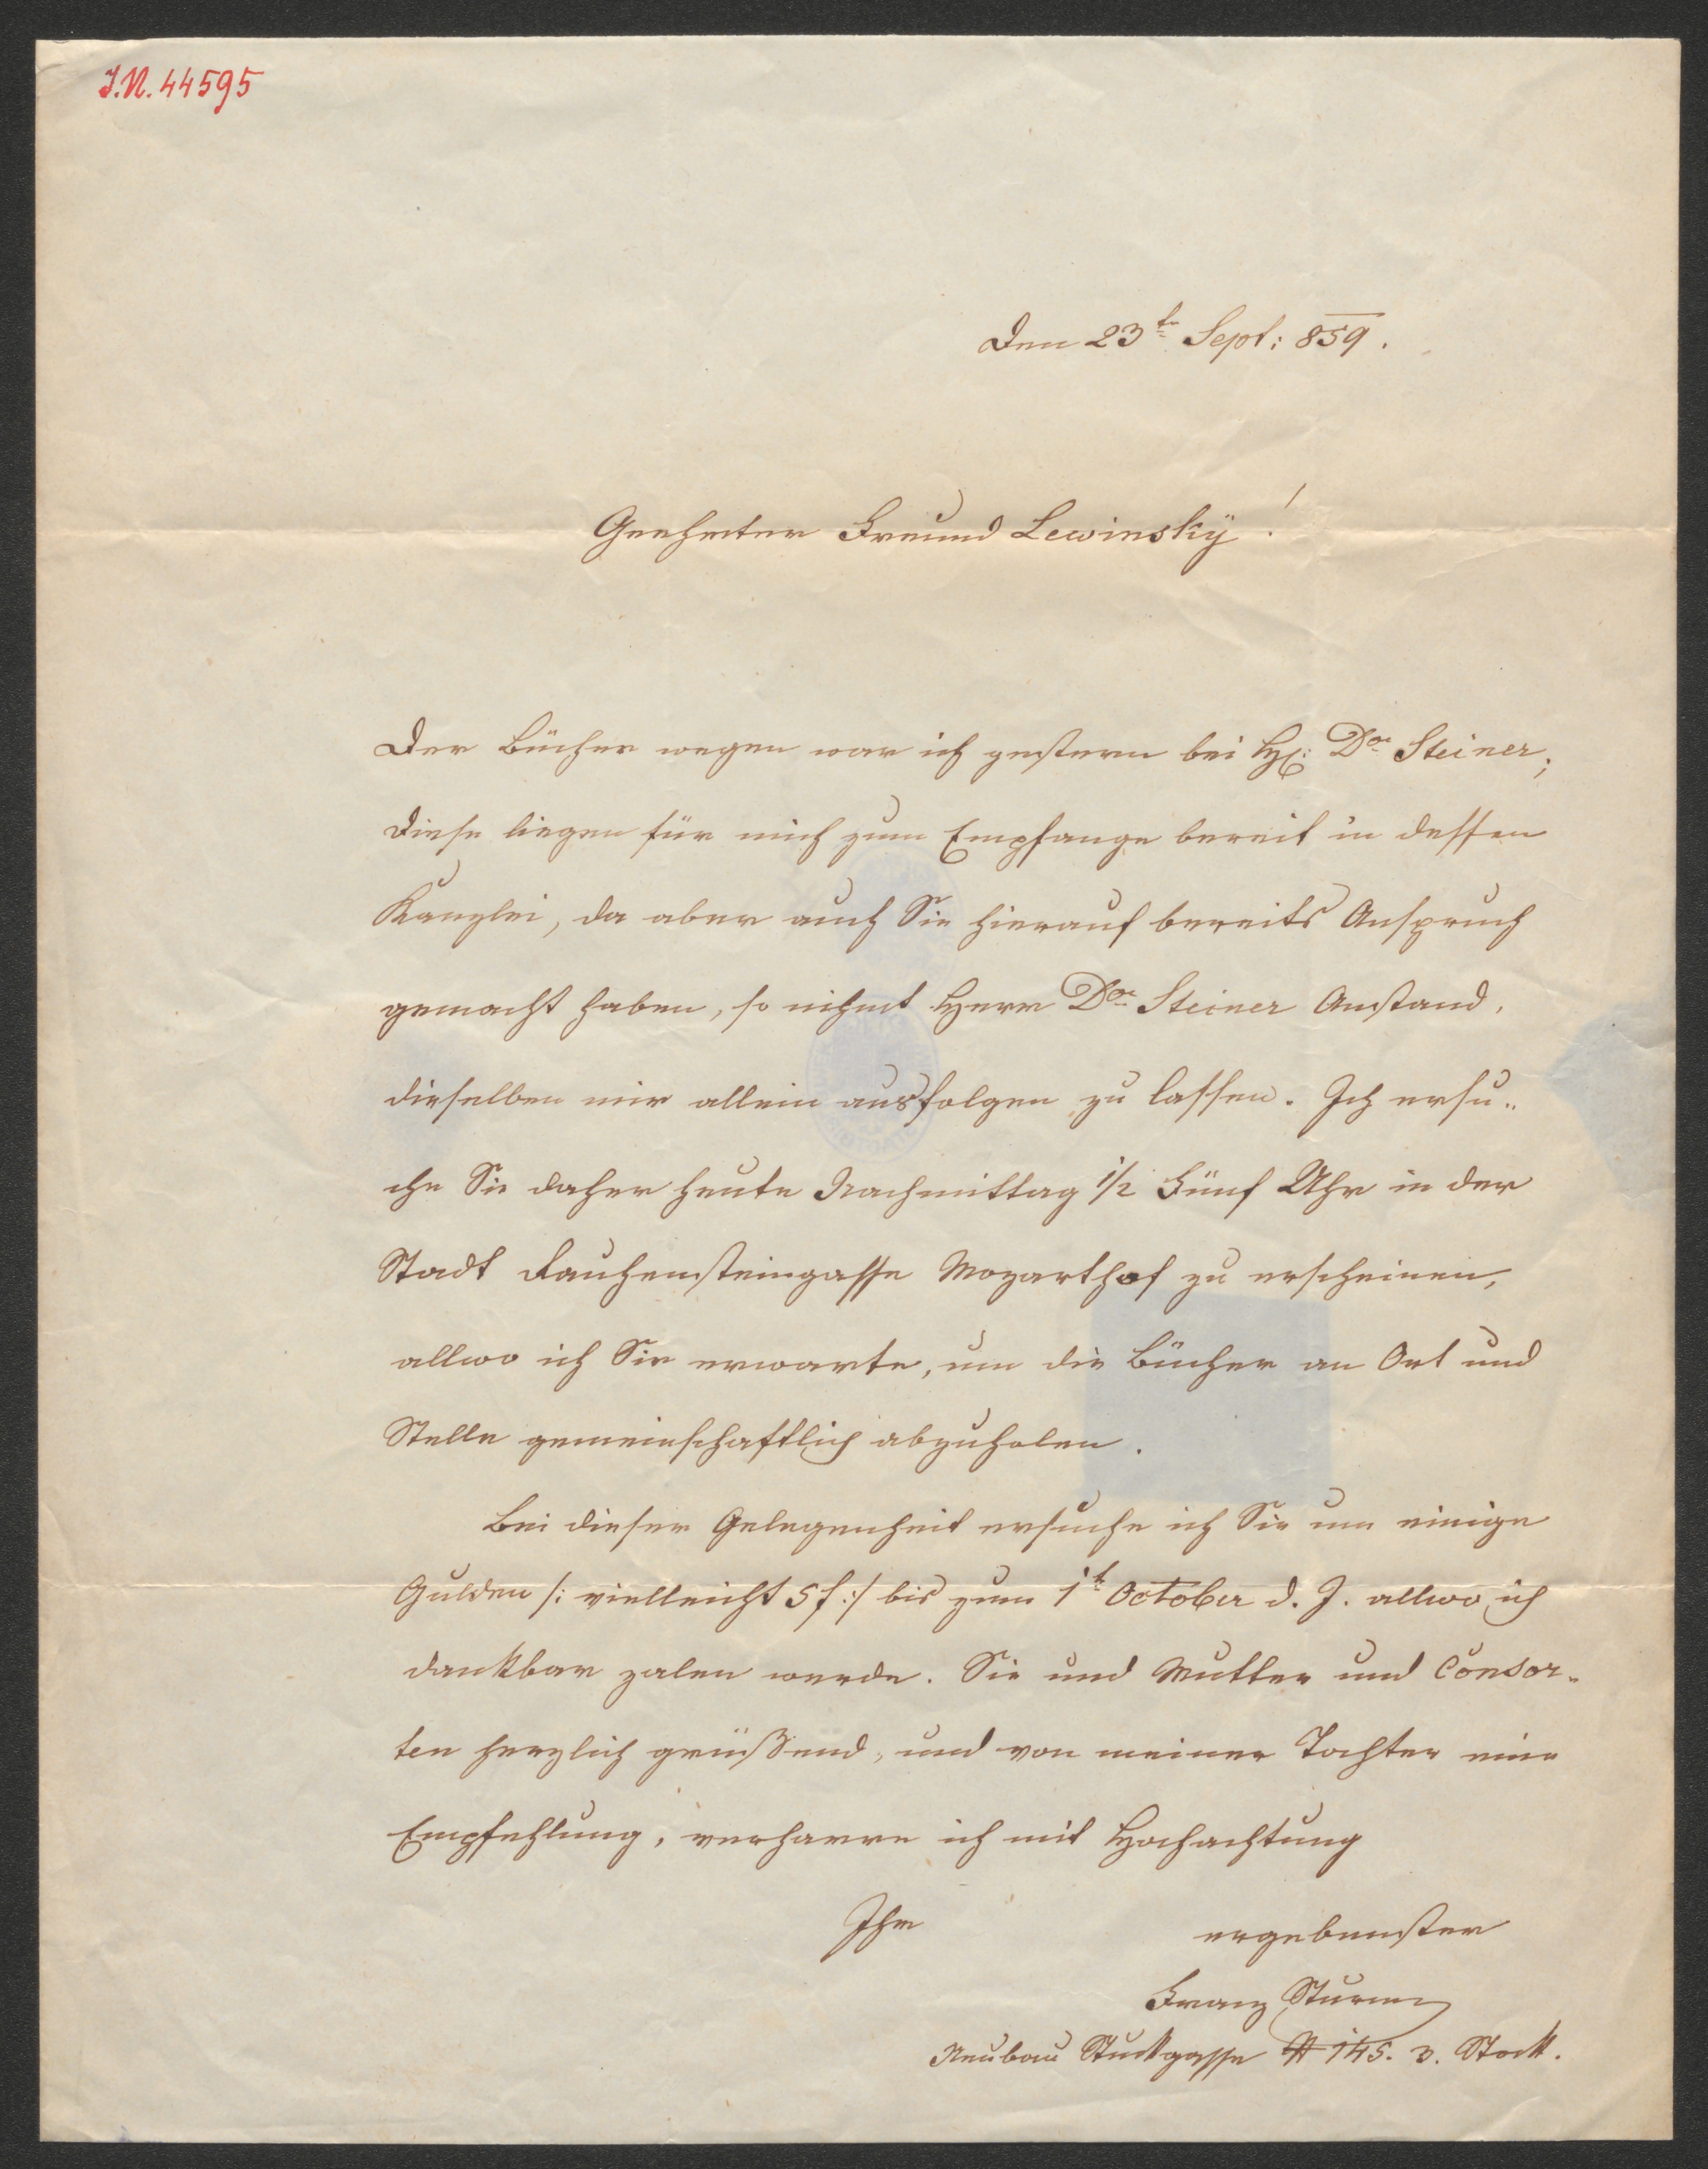 I.N. 44595
Den 23ten Sept: 859.
Geehrter Freund Lewinsky!
Der Bücher wegen war ich gestern bei H: Dor Steiner;
diese liegen für mich zum Empfange bereit in dessen
Kanzlei, da aber auch Sie hierauf bereits Anspruch
gemacht haben, so nihmt Herr Dor Steiner Anstand,
dieselben mir allein ausfolgen zu lassen. Ich ersu-
che Sie daher heute Nachmittag 1/2 Fünf Uhr in der
Stadt Rauhensteingasse Mozarthof zu erscheinen,
allwo ich Sie erwarte, um die Bücher an Ort und
Stelle gemeinschaftlich abzuholen.
Bei dieser Gelegenheit ersuche ich Sie um einige
Gulden /: vielleicht 5 f :/ bis zum 1t October d. J. allwo ich
dankbar zalen werde. Sie und Mutter und Consor-
ten herzlich grüßend, und von meiner Tochter eine
Empfehlung, verharre ich mit Hochachtung
Ihr ergebenster
Franz Sturm
Neubau Stuckgasse # 145. 3. Stock.